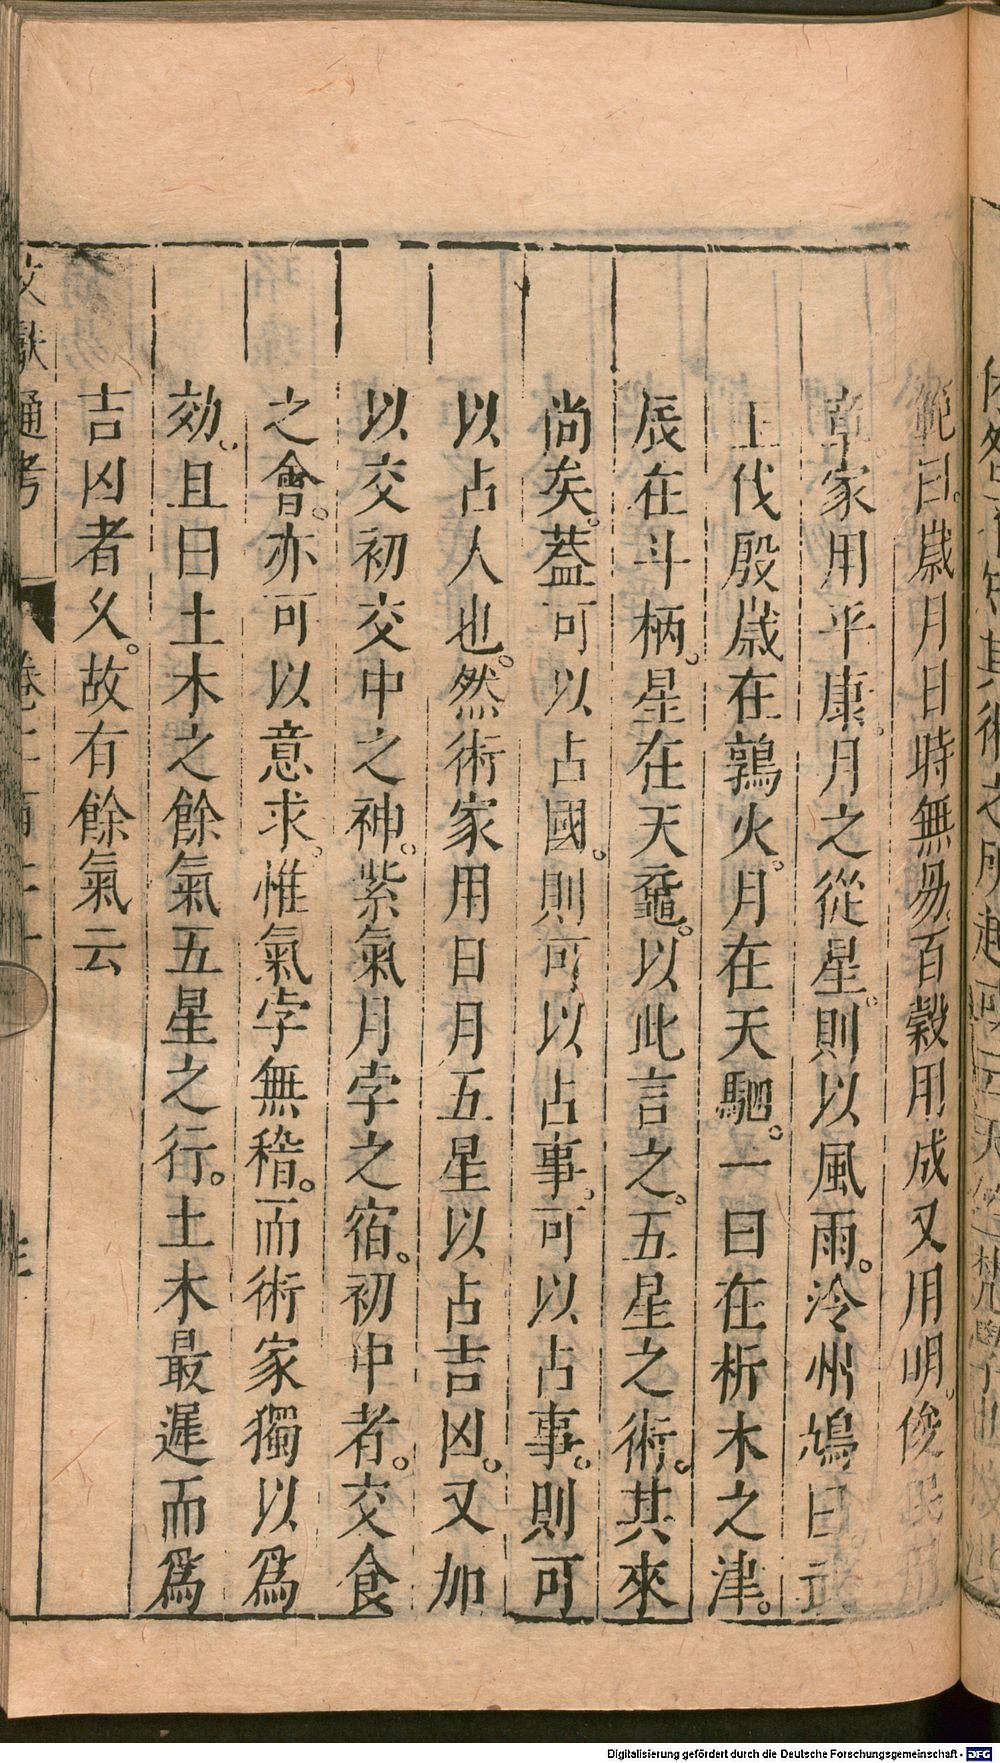 範曰。歲月日時無易。百穀用成。又用明。俊民用
章。家用平康。月之從星。則以風雨。泠州鳩曰。武
王伐殷。歲在鶉火。月在天駟。一曰在析木之津。
辰在斗柄。星在天黿。以此言之。五星之術。其來
尚矣。蓋可以占國。則可以占事。可以占事。則可
以占人也。然術家用日月五星以占吉凶。又加
以交初交中之神。紫氣月孛之宿。初中者。交食
之會。亦可以意求。惟氣孛無稽。而術家獨以爲
効。且曰土木之餘氣五星之行。土木最遲而爲
吉凶者久。故有餘氣云
文獻通考 卷二百二十
Digitalisierung gefördert durch die Deutsche Forschungsgemeinschaft - DFG